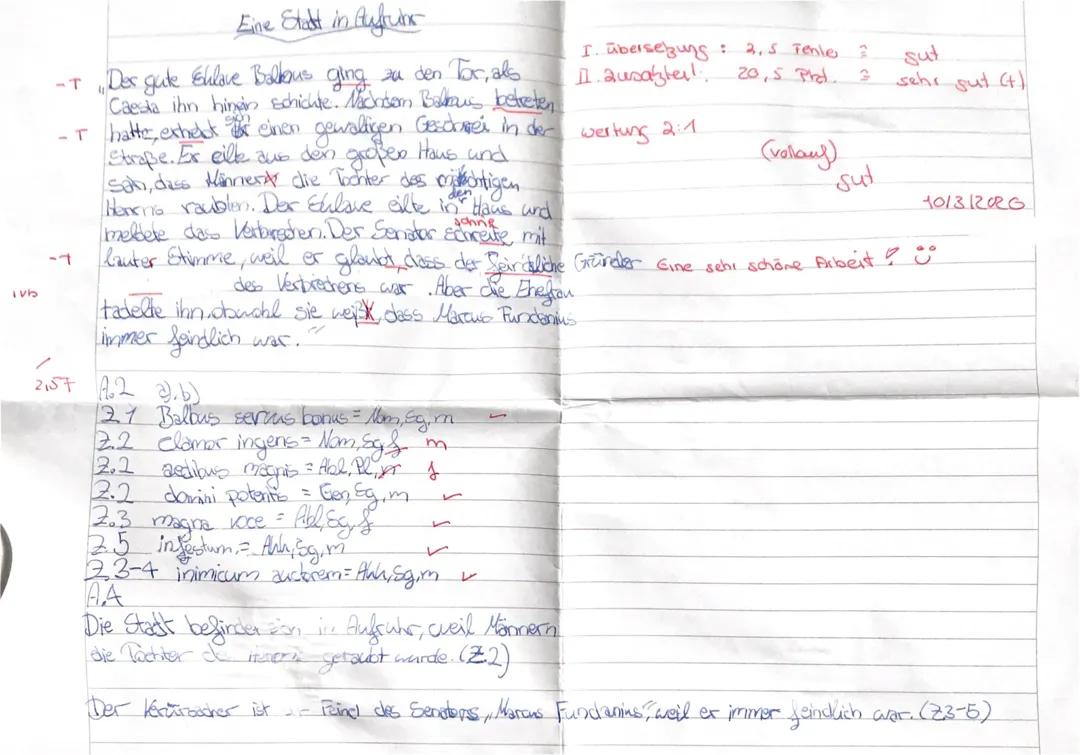 Eine Stadt in Aufruhr
I. Übersetzung : 2,5 Fehler ≙ gut
II. Zusatzteil: 20,5 Pkt. ≙ sehr gut (+)
Wertung 2:1
(vollauf)
gut
10/3/2026
-T „Der gute Sklave Balbus ging zu den Tor, als
Caesia ihn hinein schickte. Nachdem Balbus betreten
-T hatte, erhebt sich einen gewaltigen Geschrei in der
Straße. Er eilte aus dem großen Haus und
sah, dass Männer die Tochter des mächtigen
Herrns raubten. Der Sklave eilte in den Haus und
meldete das Verbrechen. Der Senator schreite mit
-T lauter Stimme, weil er glaubt, dass der Gründer Eine sehr schöne Arbeit!
1 Vb des Verbrechens war. Aber die Ehefrau
tadelte ihn, obwohl sie weiß, dass Marcus Fundanius
immer feindlich war.“
2,5F
A.2 a), b)
Z.1 Balbus servus bonus = Nom, Sg, m
Z.2 clamor ingens = Nom, Sg, f m
Z.2 aedibus magnis = Abl, Pl, f
Z.2 domini potentis = Gen, Sg, m
Z.3 magna voce = Abl, Sg, f
Z.5 infestum = Akk, Sg, m
Z.3-4 inimicum auctorem = Akk, Sg, m
A.4
Die Stadt befindet sich in Aufruhr, weil Männern
die Tochter geraubt wurde. (Z.2)
Der ist Feind des Senators „Marcus Fundanius“, weil er immer feindlich war. (Z3-5)